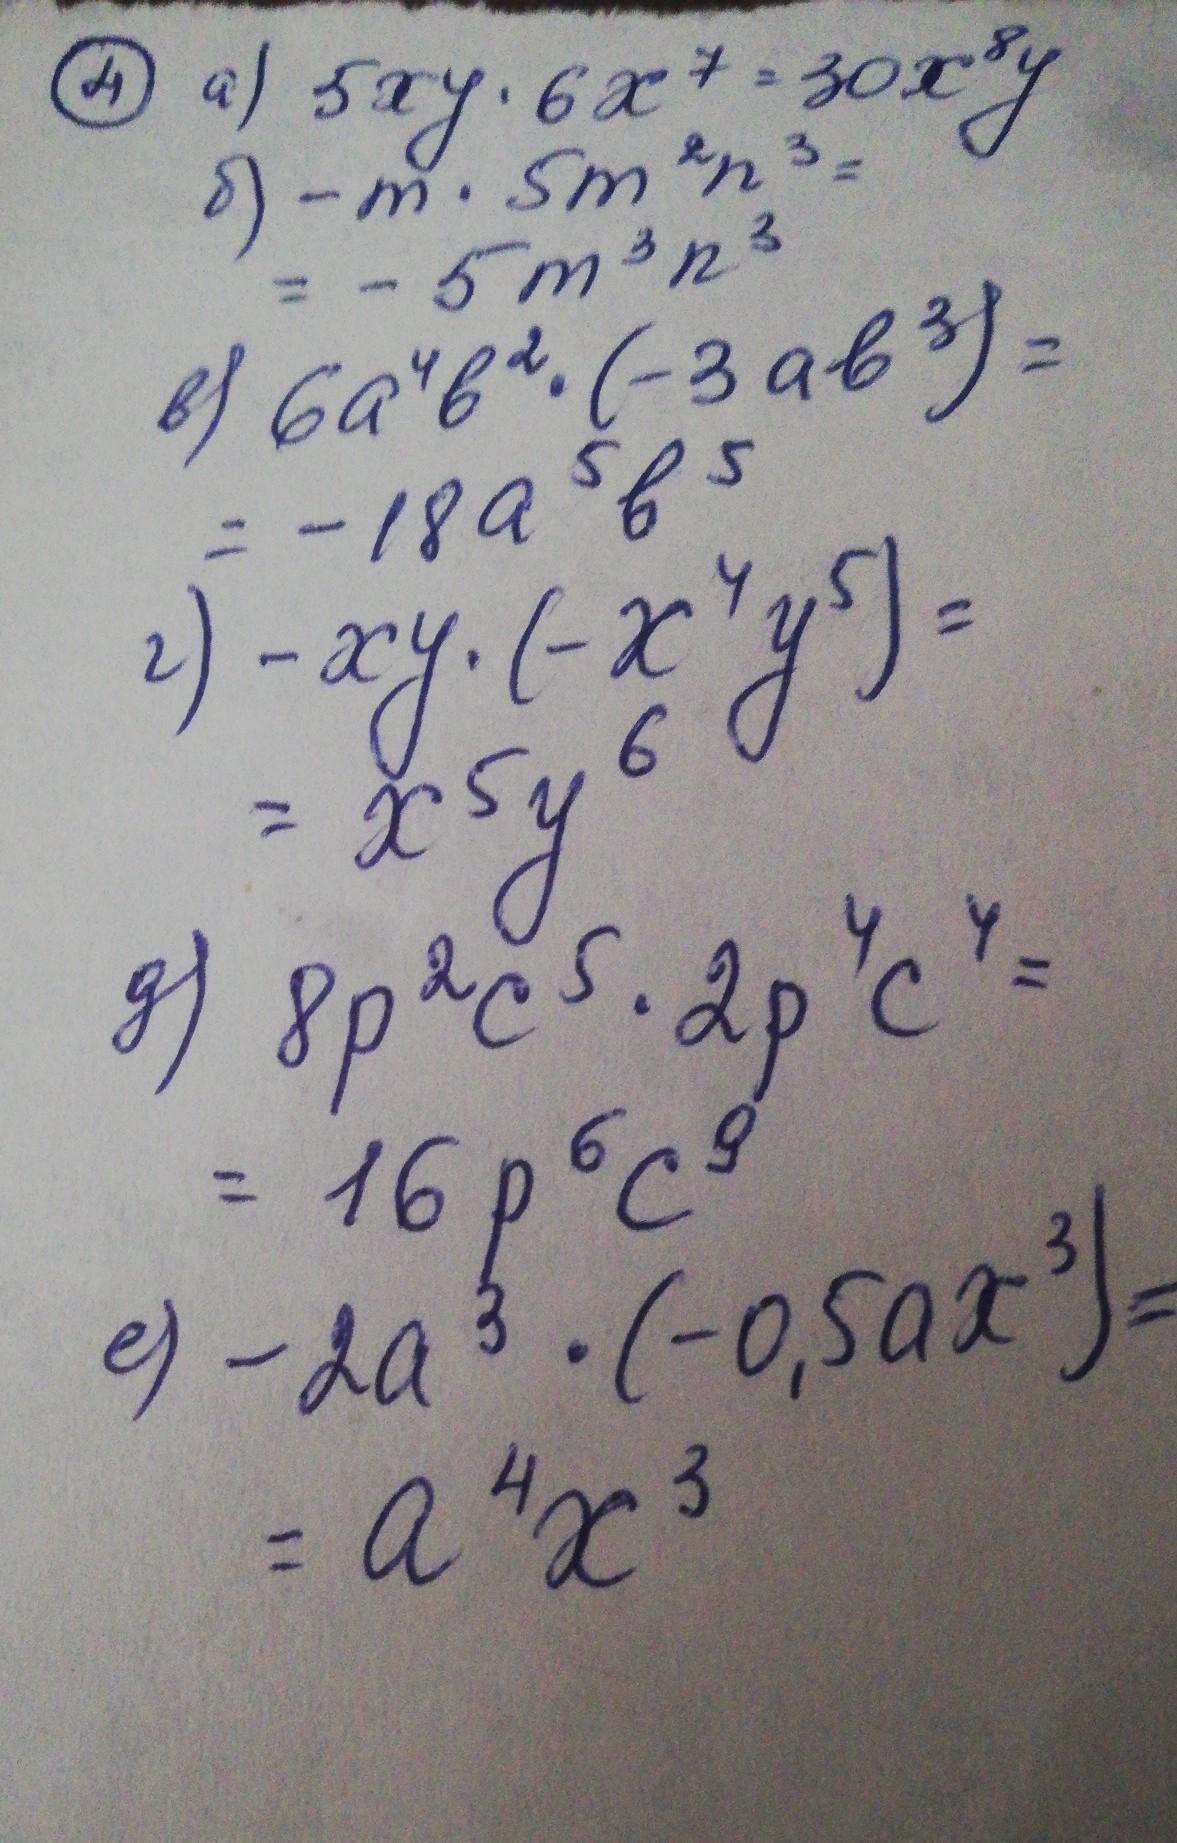 4 а) 5xy · 6x⁷ = 30x⁸y
б) - m · 5m²n³ =
= - 5m³n³
в) 6a⁴b² · (-3ab³) =
= - 18a⁵b⁵
г) - xy · (- x⁴y⁵) =
= x⁵y⁶
д) 8p²c⁵ · 2p⁴c⁴ =
= 16p⁶c⁹
е) - 2a³ · (- 0,5ax³) =
= a⁴x³